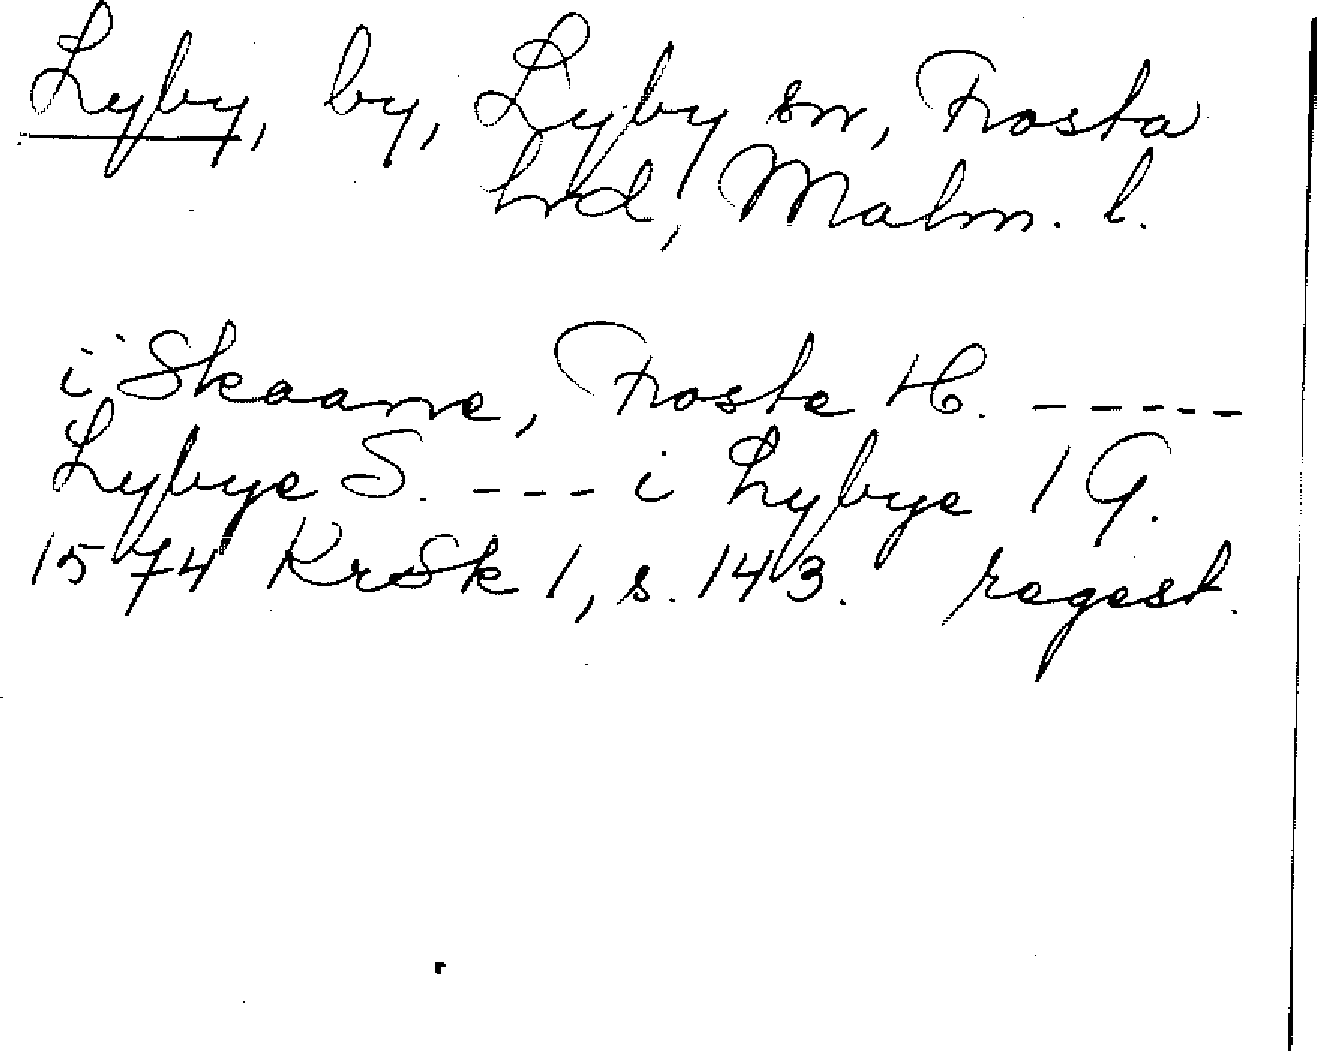 Lyby, by, Lyby sn, Frosta
hrd, Malm. l.
i Skaane, Froste H. -----
Lybye S. --- i Lybye 1 G.
1574 KrSk 1, s. 143. regest.